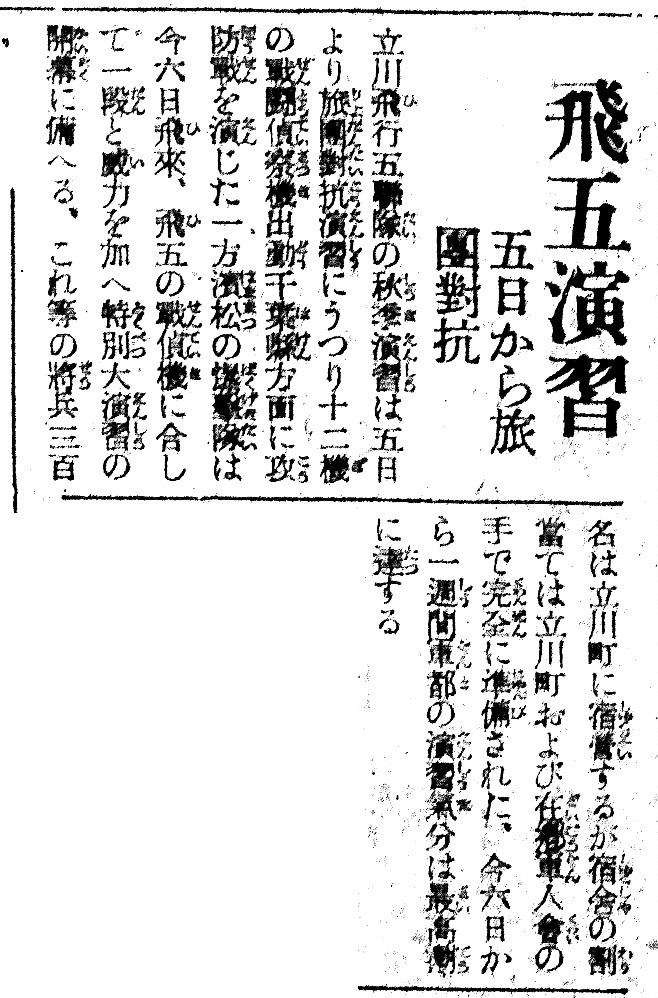 飛五演習
五日から旅
團對抗
立川飛行五聯隊の秋季演習は五日
より旅團對抗演習にうつり十二機
の戰鬪偵察機出動千葉縣方面に攻
防戰を演じた一方濱松の爆擊隊は
今六日飛來、飛五の戰偵機に合し
て一段と威力を加へ特別大演習の
開幕に備へる、これ等の將兵三百
名は立川町に宿營するが宿舍の割
當ては立川町および在鄕軍人會の
手で完全に準備された、今六日か
ら一週間軍都の演習氣分は最高潮
に達する